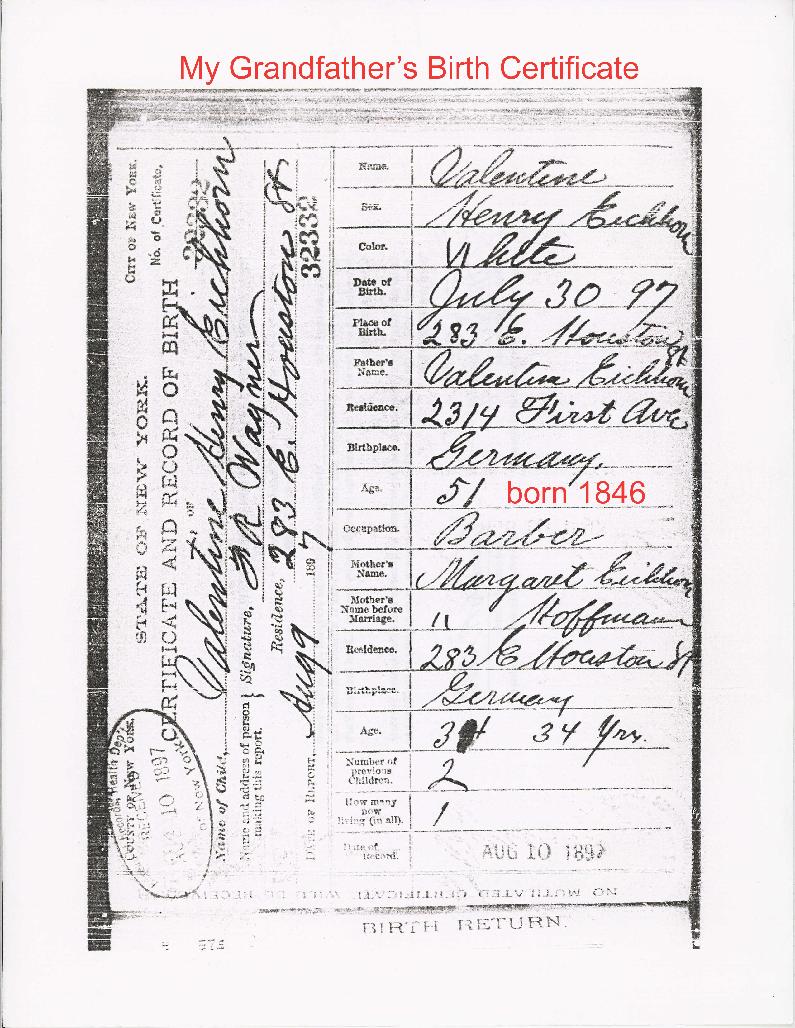 My Grandfather's Birth Certificate
CITY OF NEW YORK.
No. of Certificate,
32332
STATE OF NEW YORK.
CERTIFICATE AND RECORD OF BIRTH
OF
Name of Child, Valentine Henry Eichhorn
Name and address of person making this report. } Signature, R Wagner
Residence, 283 E. Houston St
DATE OF REPORT, Aug 9 1897
32332
COUNTY OF NEW YORK.
Health Dep't
RECEIVED
10 1897
OF NEW YORK
Name. Valentine
Sex. Henry Eichhorn
Color. White
Date of Birth. July 30 97
Place of Birth. 283 E. Houston St
Father's Name. Valentine Eichhorn
Residence. 2314 First Ave
Birthplace. Germany.
Age. 51 born 1846
Occupation. Barber
Mother's Name. Margaret Eichhorn
Mother's Name before Marriage. " Hoffmann
Residence. 283 E Houston St
Birthplace. Germany
Age. 34 34 Yrs.
Number of previous Children. 2
How many now living (in all). 1
Date of Record. AUG 10 1897
NO MUTILATED CERTIFICATE WILL BE RECEIVED
BIRTH RETURN.